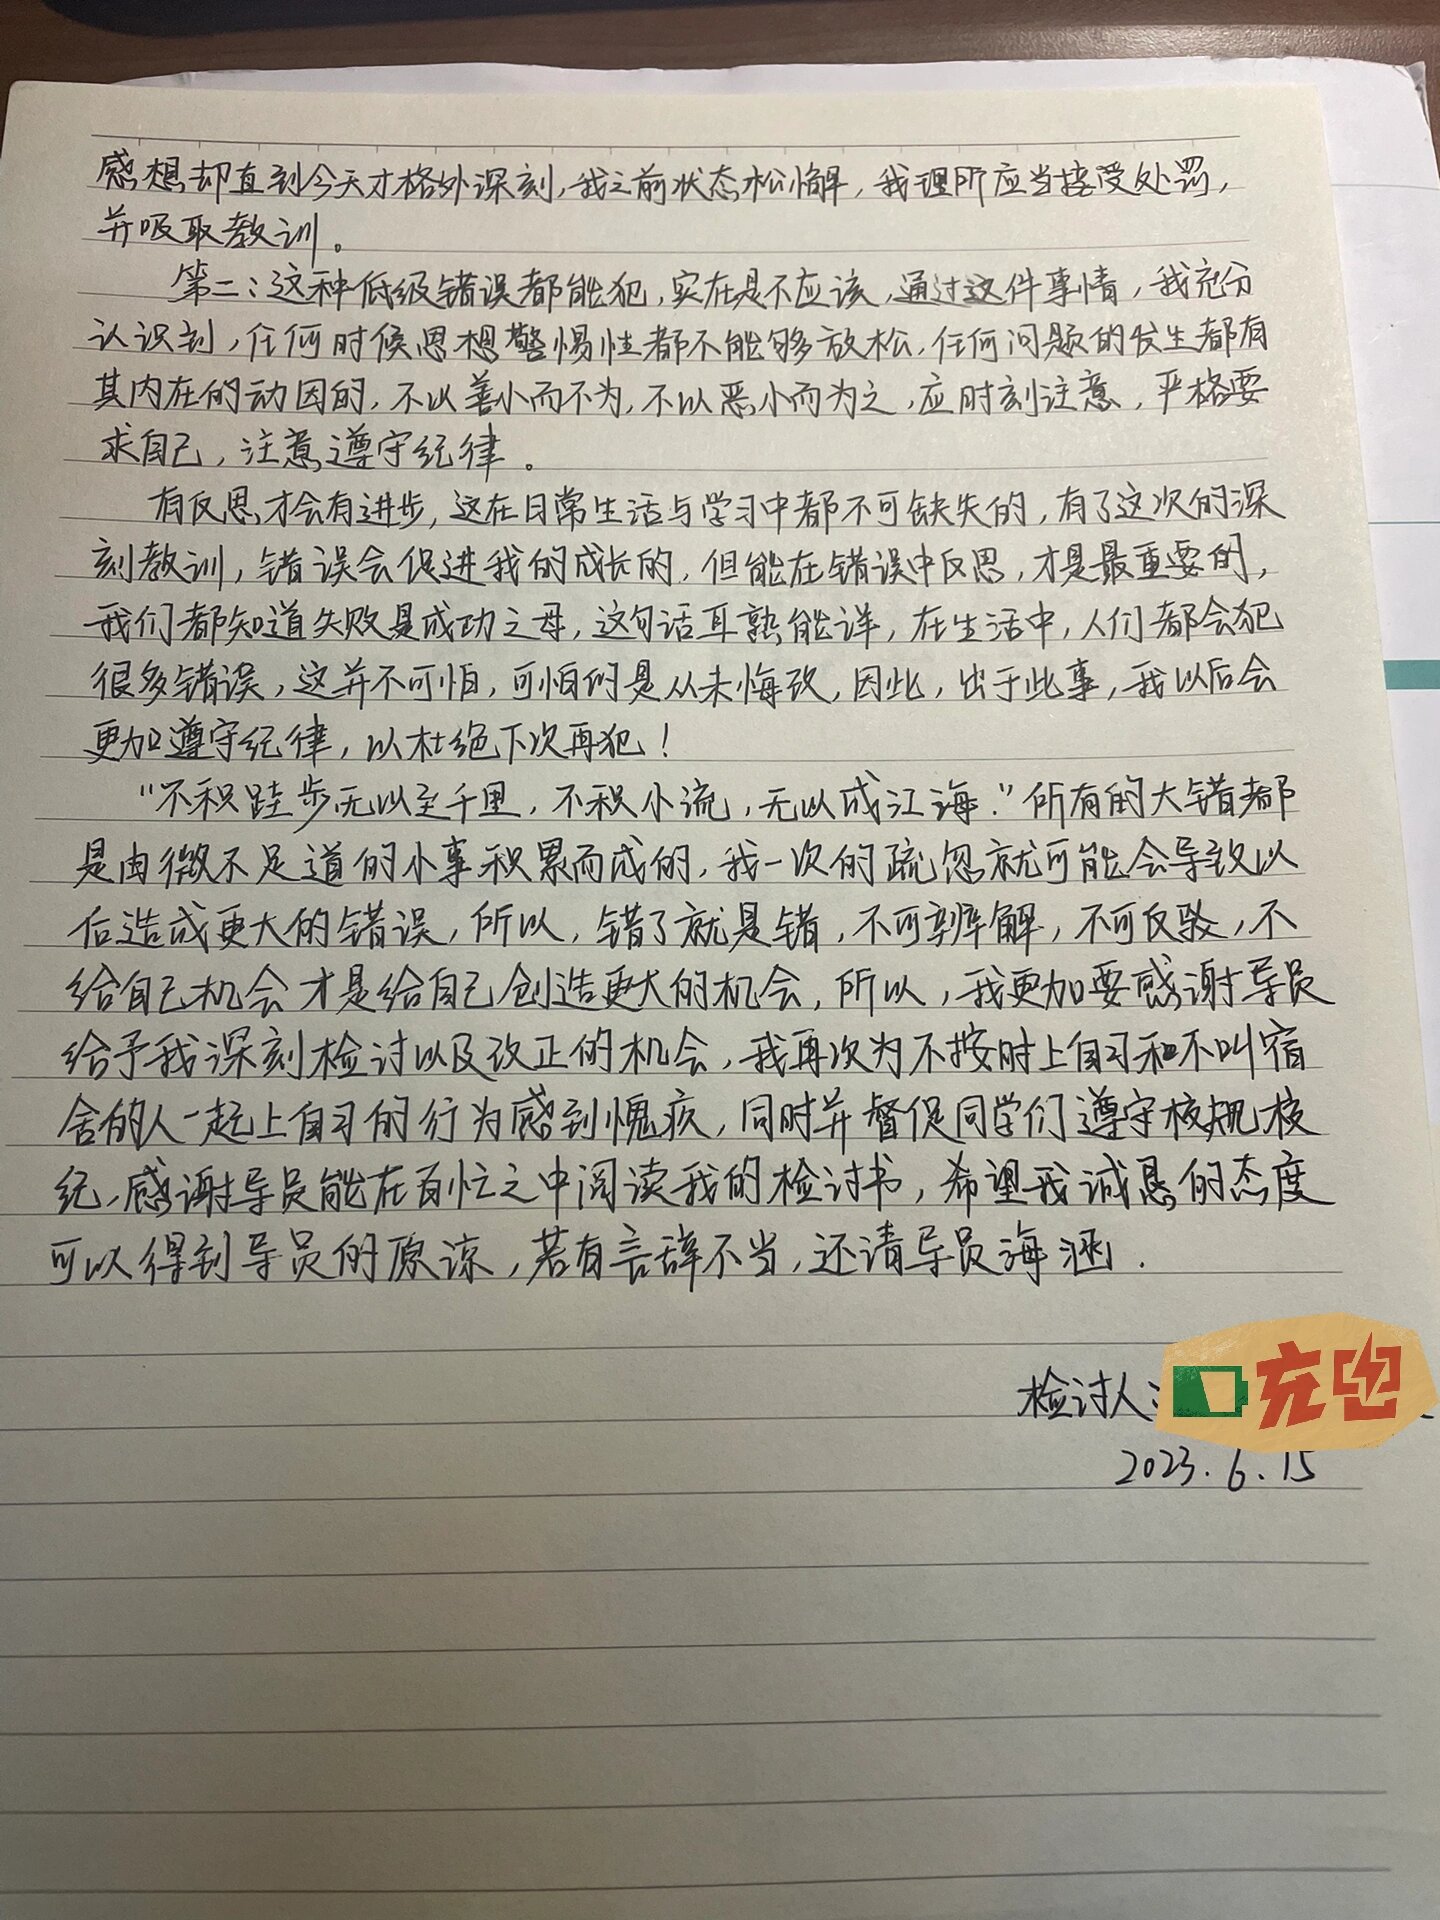 感想却直到今天才格外深刻，我之前状态松懈，我理所应当接受处罚，
并吸取教训。
第二：这种低级错误都能犯，实在是不应该，通过这件事情，我充分
认识到，任何时候思想警惕性都不能够放松，任何问题的发生都有
其内在的动因的，不以善小而不为，不以恶小而为之，应时刻注意，严格要
求自己，注意遵守纪律。
有反思才会有进步，这在日常生活与学习中都不可缺失的，有了这次的深
刻教训，错误会促进我的成长的，但能在错误中反思，才是最重要的，
我们都知道失败是成功之母，这句话耳熟能详，在生活中，人们都会犯
很多错误，这并不可怕，可怕的是从未悔改，因此，出于此事，我以后会
更加遵守纪律，以杜绝下次再犯！
“不积跬步无以至千里，不积小流，无以成江海．”所有的大错都
是由微不足道的小事积累而成的，我一次的疏忽就可能会导致以
后造成更大的错误，所以，错了就是错，不可辨解，不可反驳，不
给自己机会才是给自己创造更大的机会，所以，我更加要感谢导员
给予我深刻检讨以及改正的机会，我再次为不按时上自习和不叫宿
舍的人一起上自习的行为感到愧疚，同时并督促同学们遵守校规校
纪，感谢导员能在百忙之中阅读我的检讨书，希望我诚恳的态度
可以得到导员的原谅，若有言辞不当，还请导员海涵．
检讨人：
充电
2023.6.15